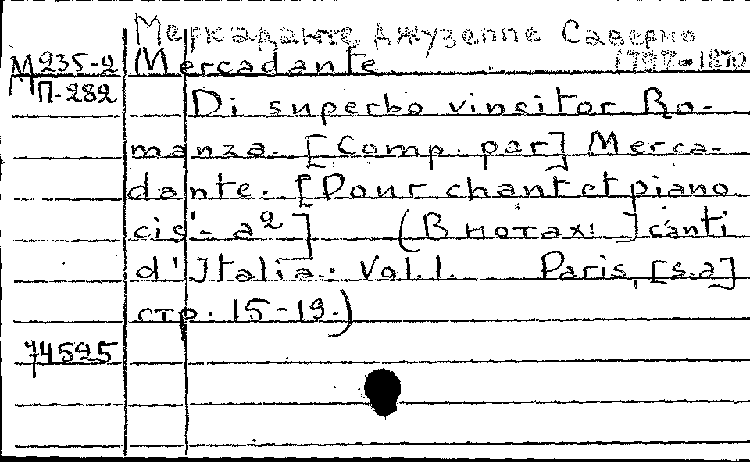 Меркаданте Джузеппе Саверио
М 235-2 Mercadante 1797-1870
П-282 Di superbo vincitor Ro-
manza. [Comp. par] Merca-
dante. [Pour chant et piano
cis'- a²] (В нотах: I canti
d'Italia. Vol. 1. Paris, [s.a]
стр. 15-19.)
74595